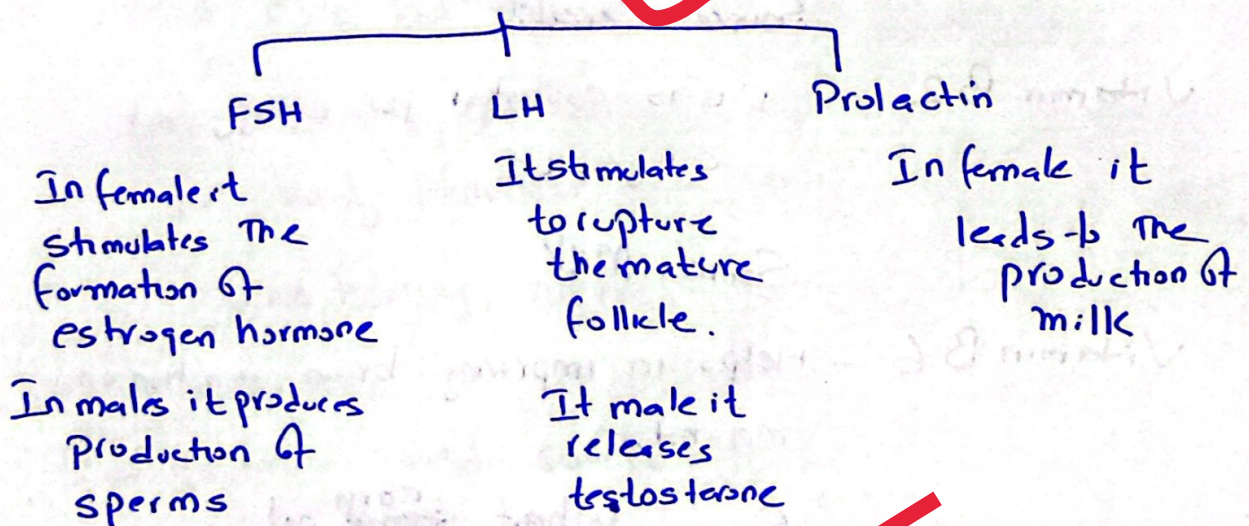 FSH
LH
Prolactin
In female it
stimulates the
formation of
estrogen hormone
In males it produces
production of
sperms
It stimulates
to rupture
the mature
follicle.
It male it
releases
testosterone
In female it
leads to the
production of
milk